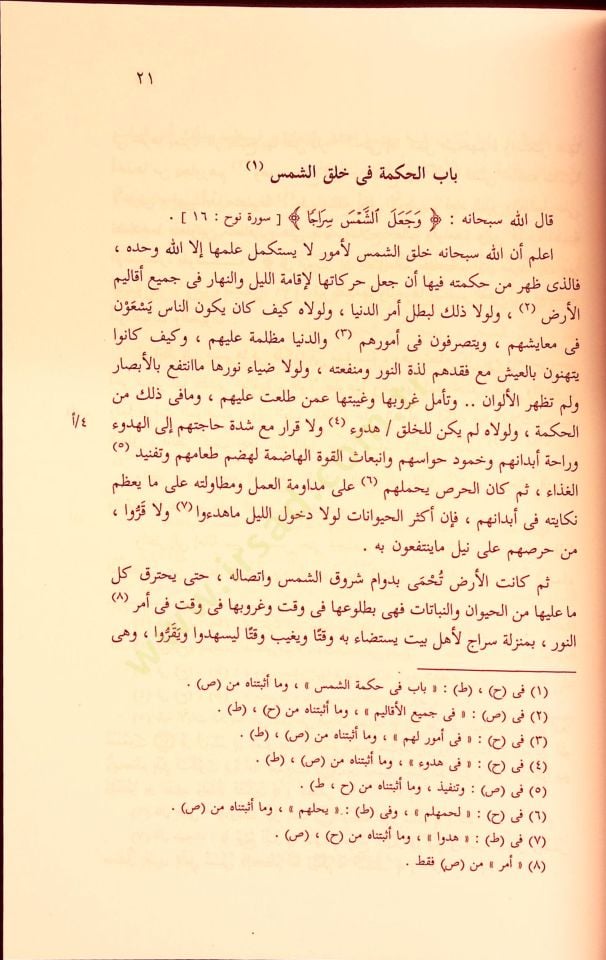 ٢١
باب الحكمة فى خلق الشمس (١)
قال الله سبحانه : ﴿ وَجَعَلَ الشَّمْسَ سِرَاجًا ﴾ [ سورة نوح : ١٦ ] .
اعلم أن الله سبحانه خلق الشمس لأمور لا يستكمل علمها إلا الله وحده ،
فالذى ظهر من حكمته فيها أن جعل حركاتها لإقامة الليل والنهار فى جميع أقاليم
الأرض (٢) ، ولولا ذلك لبطل أمر الدنيا ، ولولاه كيف كان يكون الناس يَسْعَوْن
فى معايشهم ، ويتصرفون فى أمورهم (٣) والدنيا مظلمة عليهم ، وكيف كانوا
يتهنون بالعيش مع فقدهم لذة النور ومنفعته ، ولولا ضياء نورها ماانتفع بالأبصار
ولم تظهر الألوان .. وتأمل غروبها وغيبتها عمن طلعت عليهم ، ومافى ذلك من
الحكمة ، ولولاه لم يكن للخلق / هدوء (٤) ولا قرار مع شدة حاجتهم إلى الهدوء ٤/أ
وراحة أبدانهم وخمود حواسهم وانبعاث القوة الهاضمة لهضم طعامهم وتفنيد (٥)
الغذاء ، ثم كان الحرص يحملهم (٦) على مداومة العمل ومطاولته على ما يعظم
نكايته فى أبدانهم ، فإن أكثر الحيوانات لولا دخول الليل ماهدءوا (٧) ولا قَرُّوا ،
من حرصهم على نيل ماينتفعون به .
ثم كانت الأرض تُحْمَى بدوام شروق الشمس واتصاله ، حتى يحترق كل
ما عليها من الحيوان والنباتات فهى بطلوعها فى وقت وغروبها فى وقت فى أمر (٨)
النور ، بمنزلة سراج لأهل بيت يستضاء به وقتًا ويغيب وقتًا ليسهدوا ويَقَرُّوا ، وهى
(١) فى (ح) ، (ط) : « باب فى حكمة الشمس » ، وما أثبتناه من (ص) .
(٢) فى (ص) : « فى جميع الأقاليم » ، وما أثبتناه من (ح) ، (ط) .
(٣) فى (ح) : « فى أمور لهم » ، وما أثبتناه من (ص) ، (ط) .
(٤) فى (ح) : « فى هدوء » ، وما أثبتناه من (ص) ، (ط) .
(٥) فى (ص) : وتنفيذ ، وما أثبتناه من (ح ، ط) .
(٦) فى (ح) : « لحمهلم » ، وفى (ط) : « يحلهم » ، وما أثبتناه من (ص) .
(٧) فى (ط) : « هدوا » ، وما أثبتناه من (ح) ، (ص) .
(٨) « أمر » من (ص) فقط .